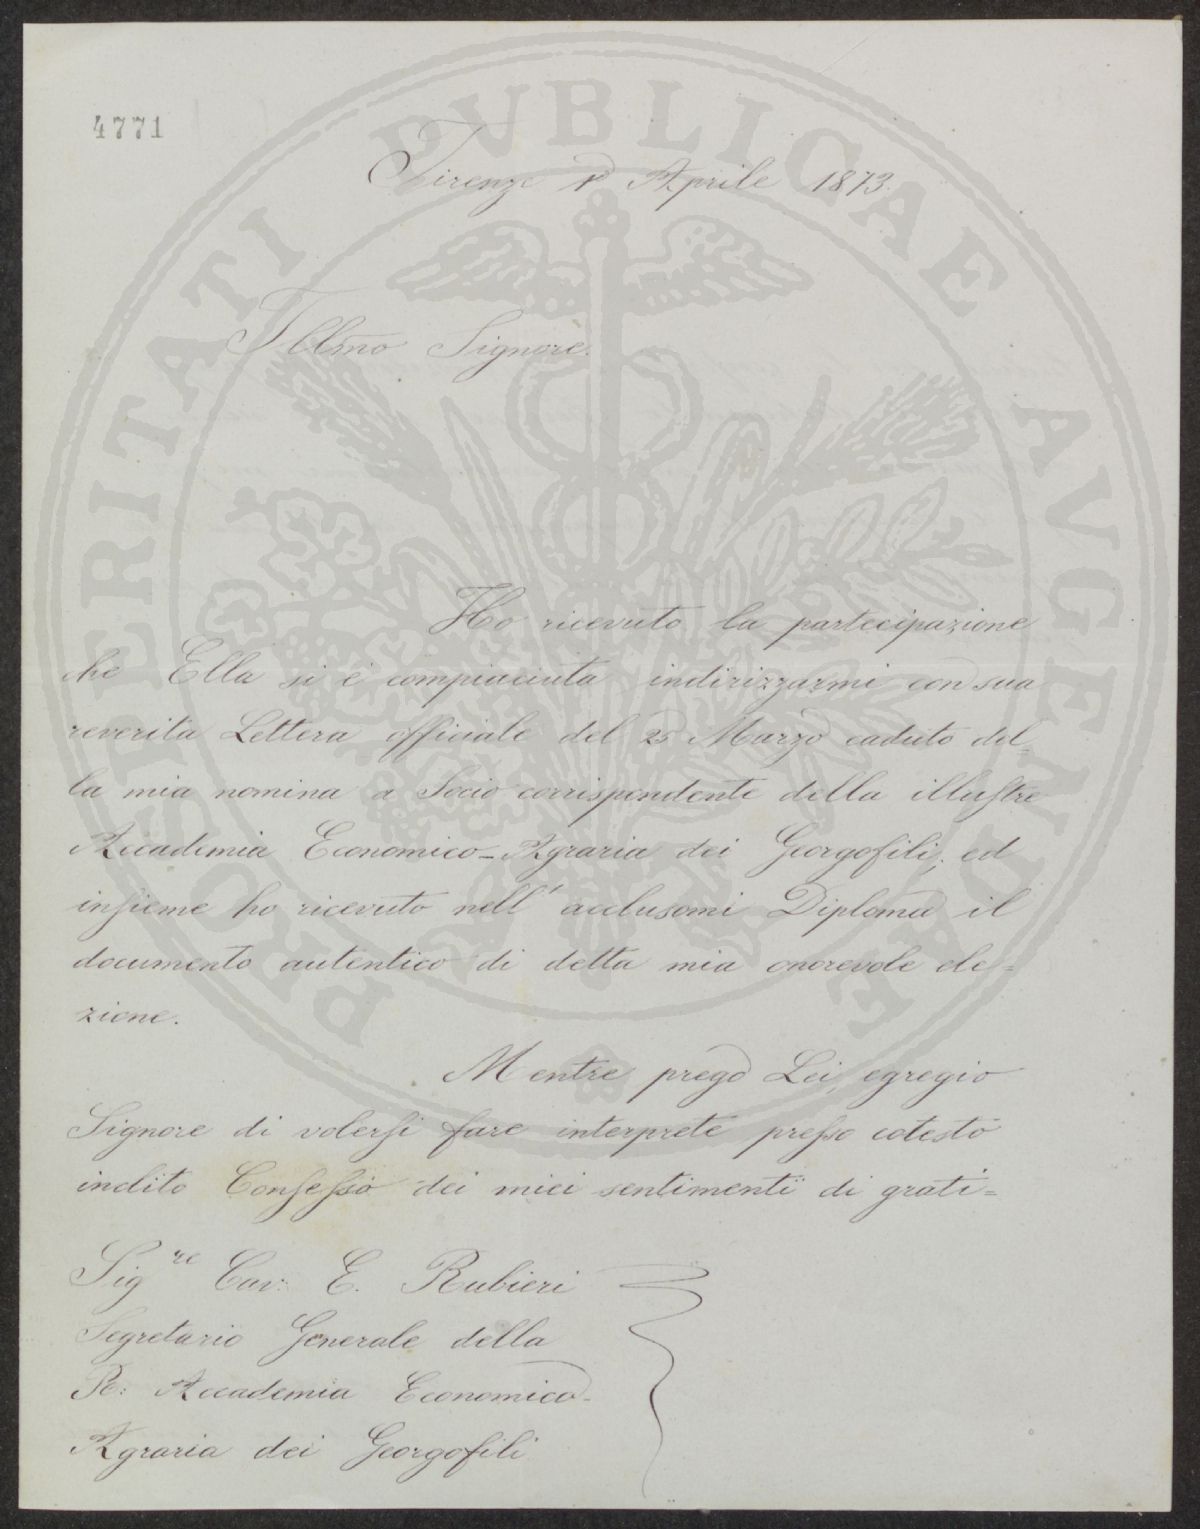 4771
Firenze 1º Aprile 1873.
Illmo Signore.
Ho ricevuto la partecipazione
che Ella si é compiaciuta indirizzarmi con sua
reverita Lettera officiale del 25 Marzo caduto del=
la mia nomina a Socio corrispondente della illustre
Accademia Economico-Agraria dei Georgofili, ed
insieme ho ricevuto nell' acclusomi Diploma il
documento autentico di detta mia onorevole ele=
zione.
Mentre prego Lei, egregio
Signore di volersi fare interprete presso cotesto
inclito Consesso dei miei sentimenti di grati=
Sigre Cav: E. Rubieri
Segretario Generale della
R: Accademia Economico-
Agraria dei Georgofili
PROSPERITATI PUBLICAE AUGENDAE